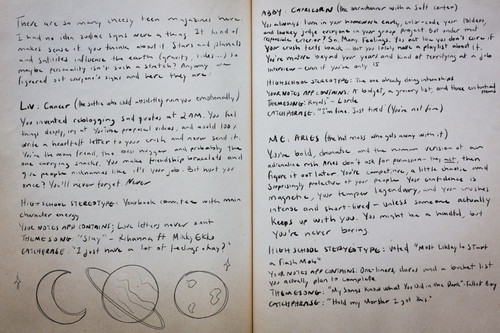 There are so many cheesy teen magazines here.
I had no idea zodiac signs were a thing. It kind of
makes sense if you think about it. Stars and planets
and satellites influence the earth (gravity, tides...) so
maybe personality isn't such a stretch? Anyway we
figured out everyone's signs and here they are:
Liv: Cancer (the softie who could absolutely ruin you emotionally)
You invented reblogging sad quotes at 2AM. You feel
things deeply, cry at YouTube proposal videos, and would 100%
write a heartfelt letter to your crush and never send it.
You're the mom friend, the and probably the
one carrying snacks. You make friendship bracelets and
give people nicknames like it's your job. But hurt you
once? You'll never forget. Never
HIGH SCHOOL STEREOTYPE: Yearbook committee with main
character energy
YOUR NOTES APP CONTAINS: Love letters never sent
THEME SONG: "Stay" - Rihanna ft Mikky Ekko
CATCHPHRASE: "I just have a lot of feelings okay?"
ABBY: CAPRICORN (the overachiever with a soft center)
You always turn in your homework early, color-code your folders,
and lowkey judge everyone in your group project. But under that
responsible exterior? So. Many. Feelings. You act like you don't care if
your crush texts back... but you totally made a playlist about it.
You're mature beyond your years and kind of terrifying at a job
interview - even if you're only 15
HIGH SCHOOL STEREOTYPE: The one already doing internships
YOUR NOTES APP CONTAINS: A budget, a grocery list, and three emotional
THEME SONG: "Royals" - Lorde
CATCHPHRASE: "I'm fine. Just tired" (You're not fine)
ME: ARIES (the hot mess who gets away with it)
You're bold, dramatic and the human version of an
adrenaline rush. Aries don't ask for permission - they act, then
figure it out later. You're competitive, a little chaotic and
surprisingly protective of your people. Your confidence is
magnetic, your temper legendary, and your crushes
intense and short-lived - unless someone actually
keeps up with you. You might be a handful, but
you're never boring.
HIGH SCHOOL STEREOTYPE: Voted "Most Likley to Start
a Flash Mob"
YOUR NOTES APP CONTAINS: One-liners, dares and a bucket list
you actually plan to complete
THEME SONG: "My Songs Know What You Did in the Dark" - Fallout Boy
CATCHPHRASE: "Hold my Slurpee I got this."